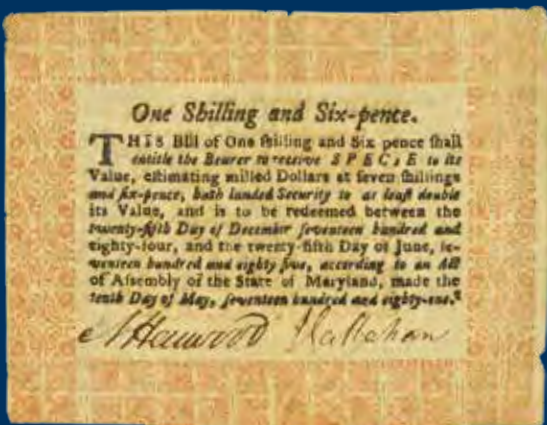 One Shilling and Six-pence.
THIS Bill of One ſhilling and Six pence ſhall
entitle the Bearer to receive SPECIE to its
Value, eſtimating milled Dollars at ſeven ſhillings
and ſix-pence, hath landed Security to at leaſt double
its Value, and is to be redeemed between the
twenty-fifth Day of December ſeventeen hundred and
eighty-four, and the twenty-fifth Day of June, ſe-
venteen hundred and eighty five, according to an Act
of Aſſembly of the State of Maryland, made the
tenth Day of May, ſeventeen hundred and eighty-one.
Harwood J Callahan